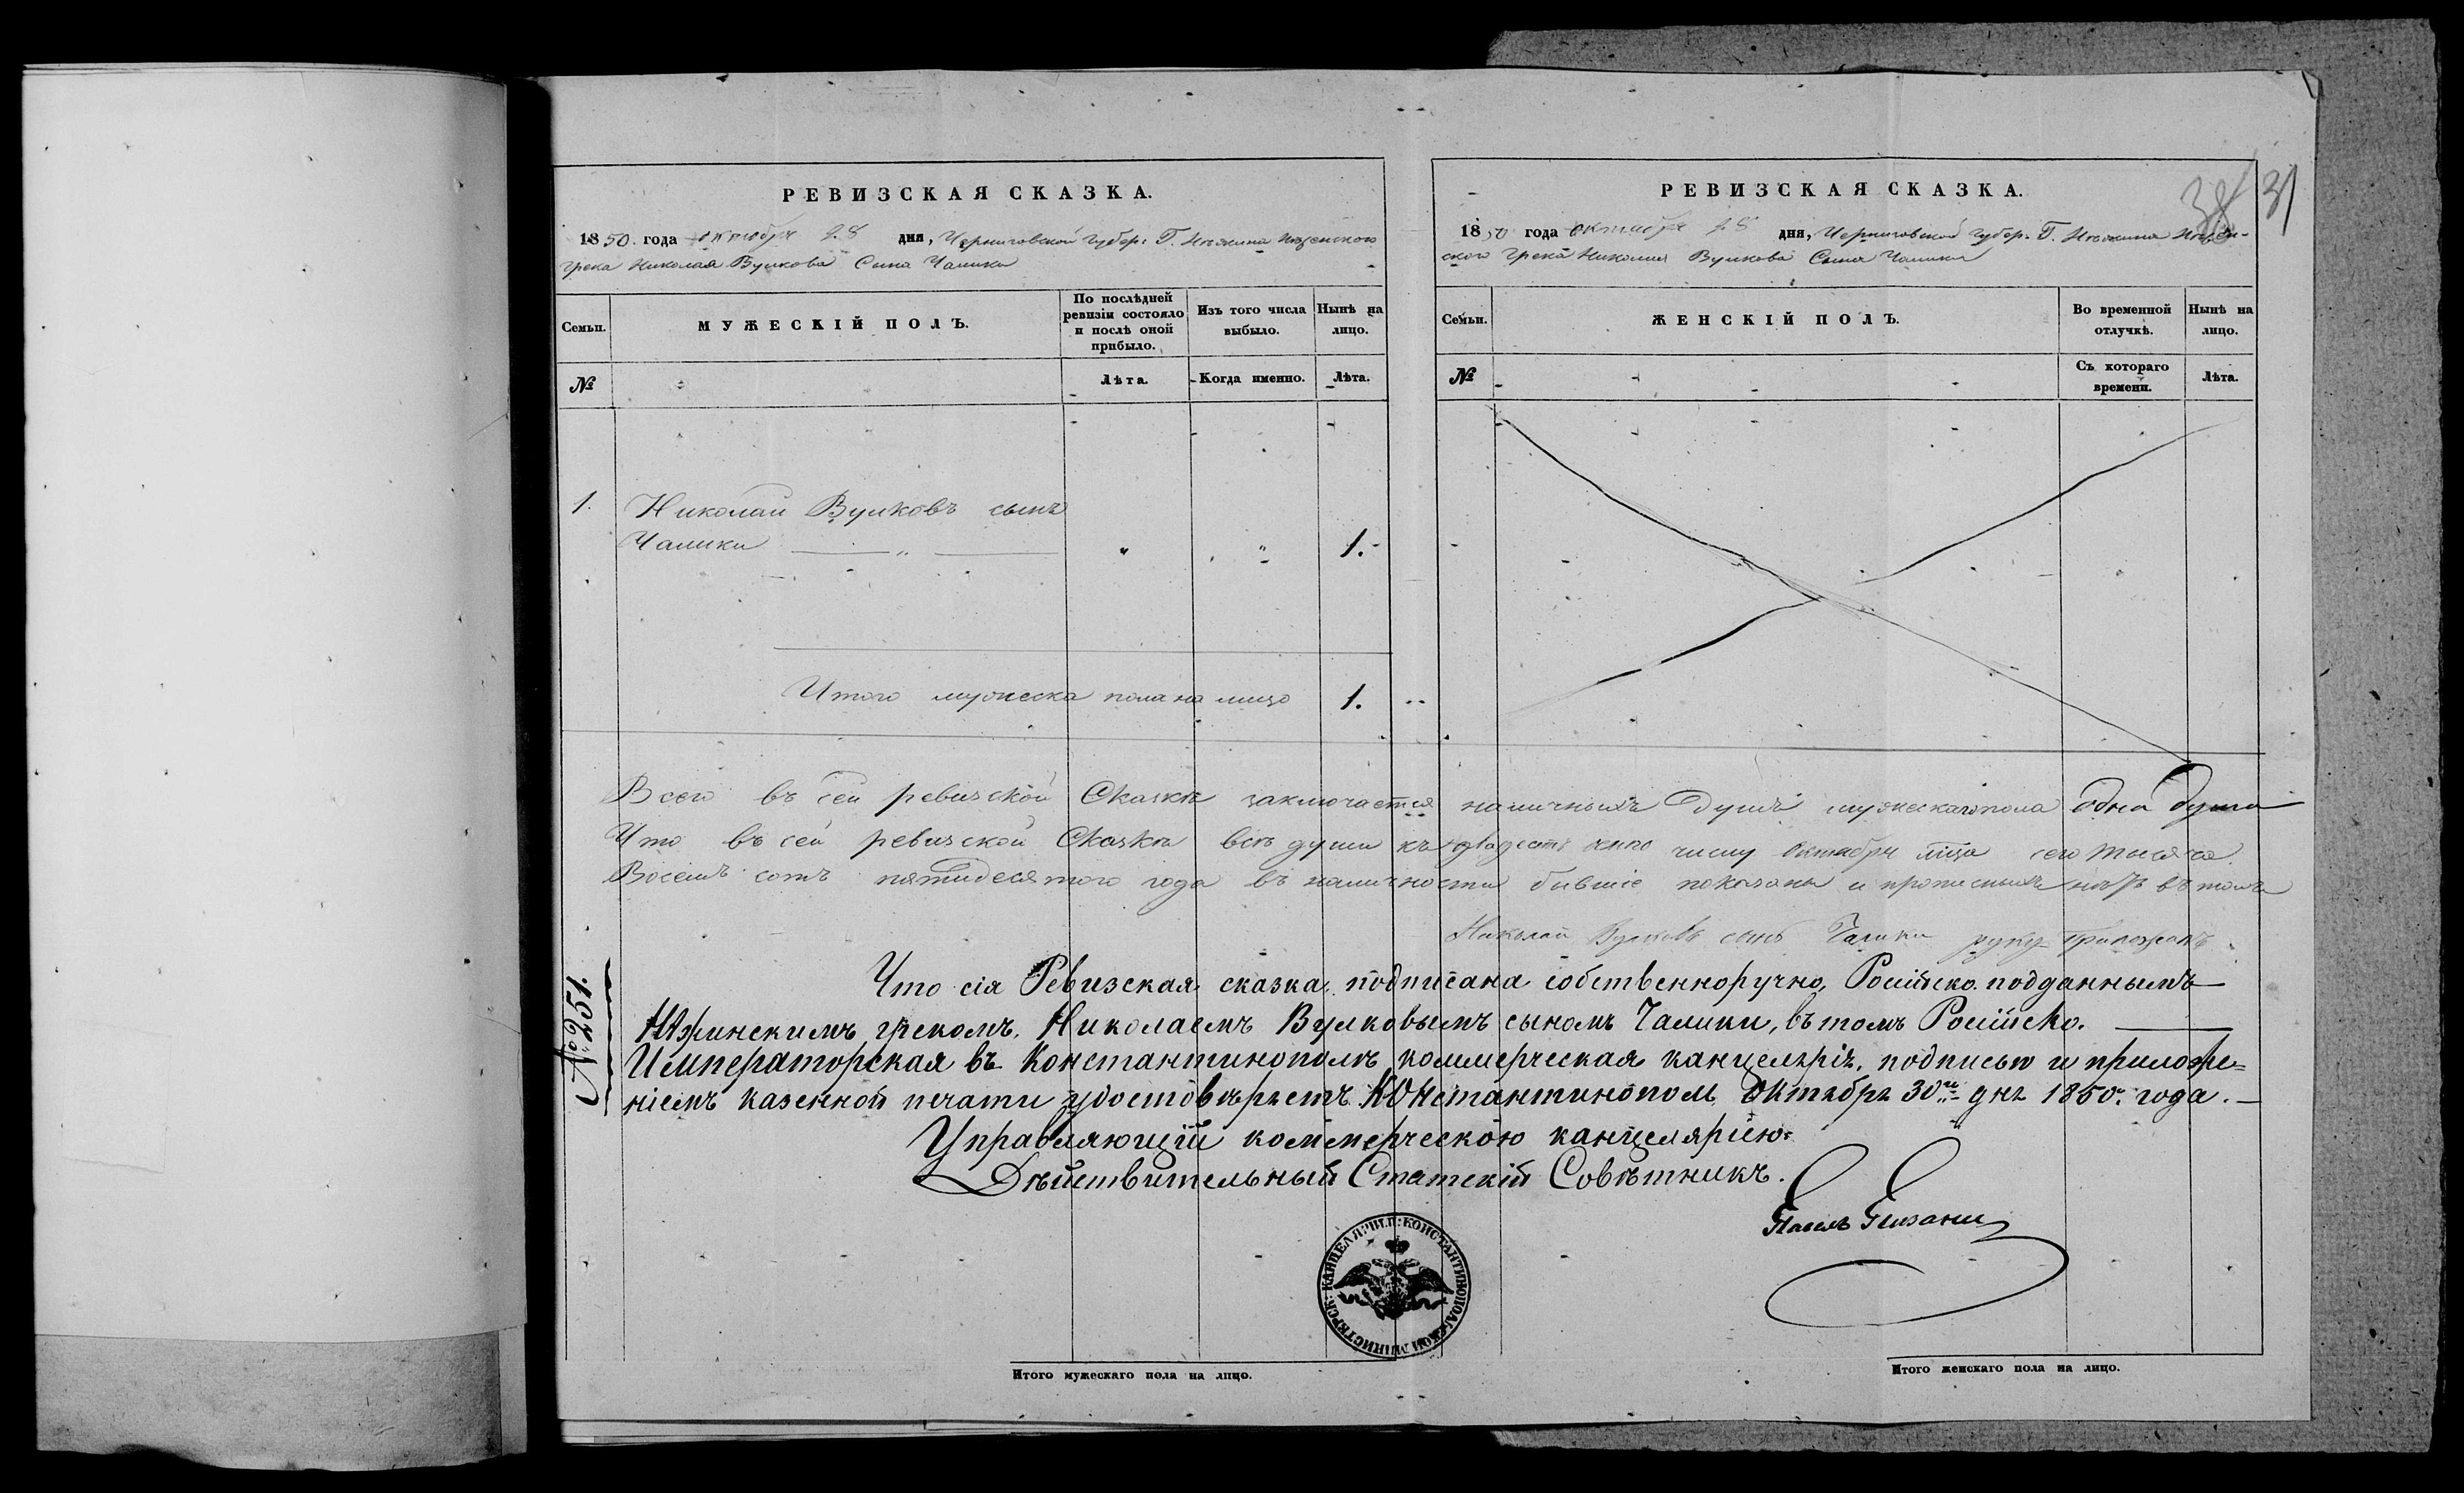 РЕВИЗСКАЯ СКАЗКА.
1850. года октября 28 дня, Черниговской губер: Г. Нѣжина Нѣженского
грека Николая Вулкова Сына Чалики
Семьи.
МУЖЕСКІЙ ПОЛЪ.
По послѣдней ревизіи состояло и послѣ оной прибыло.
Изъ того числа выбыло.
Нынѣ на лицо.
№
Лѣта.
Когда именно.
Лѣта.
1. Николай Вулковъ сынъ
Чалики — „ — „ „ 1.
Итого мужеска пола на лицо 1.
РЕВИЗСКАЯ СКАЗКА.
38 31
1850 года октября 28 дня, Черниговской губер. Г. Нѣжина Нѣжен-
ского грека Николая Вулкова Сына Чалики
Семьи.
ЖЕНСКІЙ ПОЛЪ.
Во временной отлучкѣ.
Нынѣ на лицо.
№
Съ котораго времени.
Лѣта.
Всего въ сей ревизской Сказкѣ заключается наличныхъ Душъ мужескаго пола Одна душа
Что въ сей ревизской Сказкѣ всѣ души къ числу Октября сего тысяча
Восемь сотъ пятидесятого года въ наличности бывшіе показаны и прописныхъ нѣтъ въ томъ
Николай Вулковъ сынъ Чалики руку приложилъ.
№ 251.
Что сія Ревизская сказка, подписана собственноручно, Россійско подданнымъ
Нѣжинскимъ грекомъ, Николаемъ Вулковымъ сыномъ Чалики, въ томъ Россійско.
Императорская въ Константинополѣ коммерческая канцелярія, подписью и приложе=
ніемъ казенной печати удостовѣряетъ. Константинополь Октября 30го дня 1850го года.
Управляющій коммерческою канцеляріею
Дѣйствительный Статскій Совѣтникъ.
Павелъ Пизани
КОНСТАНТИНОПОЛЬСКОЙ
Итого мужескаго пола на лицо.
Итого женскаго пола на лицо.